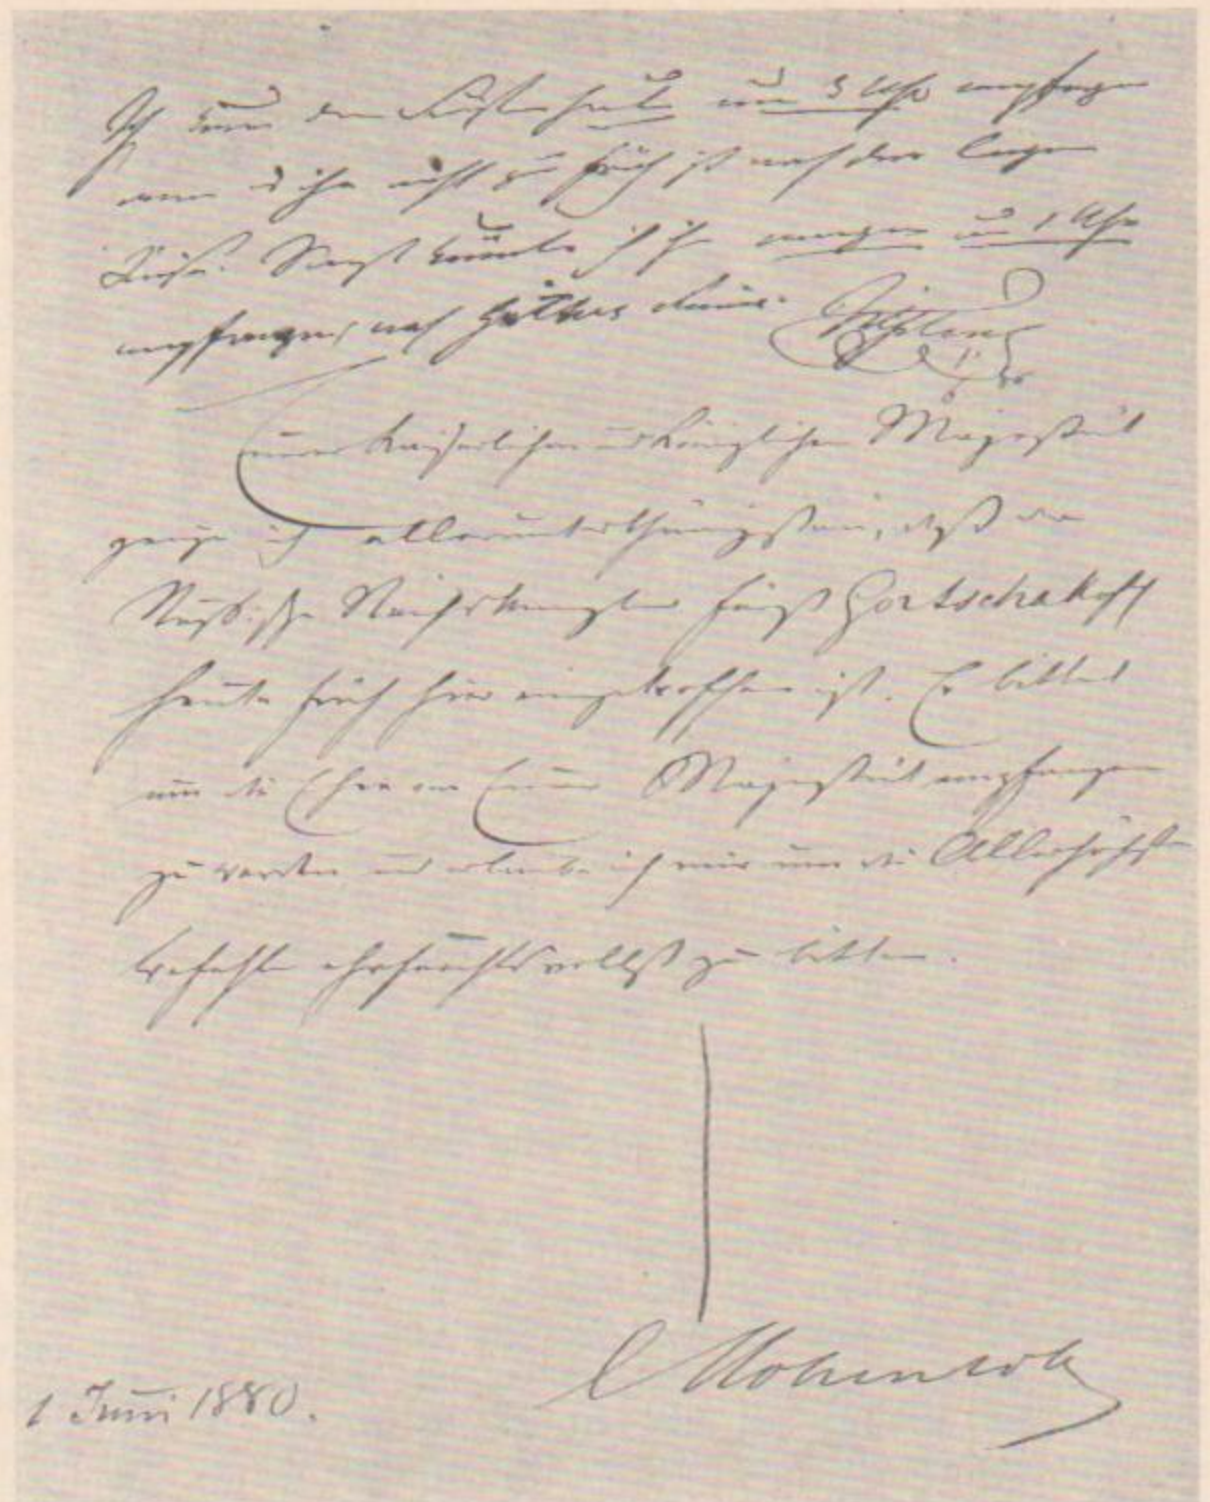 Ich kann den Fürsten heute um 3 Uhr empfangen
wenn es ihm nicht zu früh ist nach der langen
Reise. Sonst könnte ich ihn morgen um 1 Uhr
empfangen, nach
Wilhelm
Euer Kaiserlichen und Königlichen Majestät
zeige ich allerunterthänigst an, daß der
Russische Reichskanzler Fürst Gortschakoff
heute früh hier eingetroffen ist. Er bittet
um die Ehre von Euer Majestät empfangen
zu werden und erlaube ich mir um die Allerhöchsten
Befehle ehrfurchtsvollst zu bitten.
C Hohenlohe
1 Juni 1880.